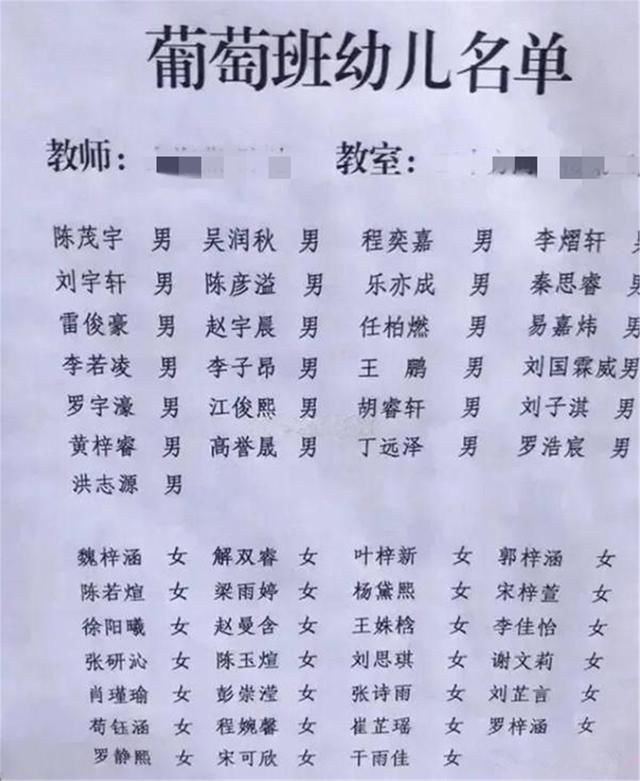 葡萄班幼儿名单
教师： 教室：
陈茂宇 男 吴润秋 男 程奕嘉 男 李熠轩 男
刘宇轩 男 陈彦溢 男 乐亦成 男 秦思睿 男
雷俊豪 男 赵宇晨 男 任柏燃 男 易嘉炜 男
李若凌 男 李子昂 男 王 鹏 男 刘国霖威 男
罗宇濠 男 江俊熙 男 胡睿轩 男 刘子淇 男
黄梓睿 男 高誉晟 男 丁远泽 男 罗浩宸 男
洪志源 男
魏梓涵 女 解双睿 女 叶梓新 女 郭梓涵 女
陈若煊 女 梁雨婷 女 杨黛熙 女 宋梓萱 女
徐阳曦 女 赵曼含 女 王姝栲 女 李佳怡 女
张研沁 女 陈玉煊 女 刘思琪 女 谢文莉 女
肖瑾瑜 女 彭崇滢 女 张诗雨 女 刘芷言 女
苟钰涵 女 程婉馨 女 崔芷瑶 女 罗梓涵 女
罗静熙 女 宋可欣 女 干雨佳 女